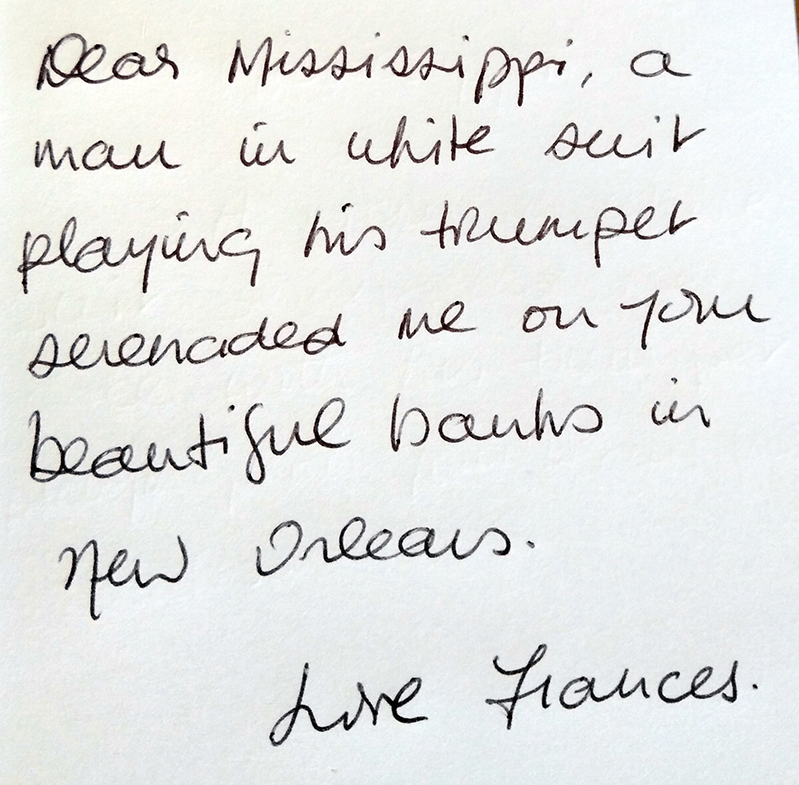 Dear Mississippi, a
man in white suit
playing his trumpet
serenaded me on your
beautiful banks in
New Orleans.
Love Frances.